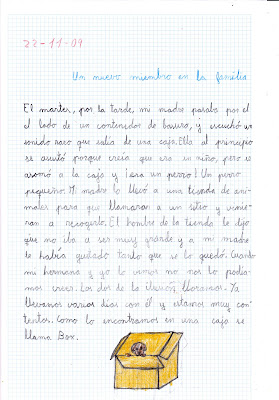 22-11-09
Un nuevo miembro en la familia
El martes, por la tarde, mi madre pasaba por el
el lado de un contenedor de basura, y escuchó un
sonido raro que salía de una caja. Ella al principio
se asustó porque creía que era un niño, pero se
asomó a la caja y ¡era un perro! Un perro
pequeño. Mi madre lo llevó a una tienda de ani-
males para que llamaran a un sitio y vinie-
ran a recogerlo. El hombre de la tienda le dijo
que no iba a ser muy grande y a mi madre
le había gustado tanto que se lo quedó. Cuando
mi hermana y yo lo vimos no nos lo podía-
mos creer. Las dos de la ilusión lloramos. Ya
llevamos varios días con él y estamos muy con-
tentos. Como lo encontramos en una caja se
llama Box.